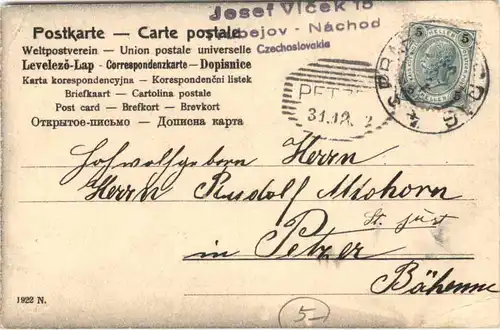 Postkarte — Carte postale
Josef Vlček 15
bejov - Náchod
Czechoslovakia
Weltpostverein — Union postale universelle
Levelező-Lap - Correspondenzkarte - Dopisnice
Karta korespondencyjna — Korespondenční listek
Briefkaart — Cartolina postale
Post card — Brefkort — Brevkort
Открытое-письмо — Дописна карта
5 5
HELLER
PETZ
31.12. 2
Hochwolfgeborn Herrn
Herrn Rudolf Miohorn
St. Just
in Petzer
Böhenne
1922 N.
5-